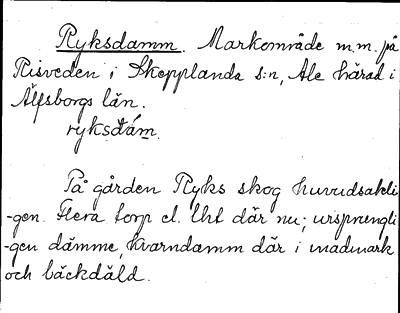 Ryksdamm. Markområde m.m. på
Risveden i Skepplanda s:n, Ale härad i
Älfsborgs län.
ryksdám.
På gården Ryks skog huvudsakli-
-gen. Flera torp el. lht där nu; ursprungli-
-gen dämme, kvarndamm där i madmark
och bäckdåld.